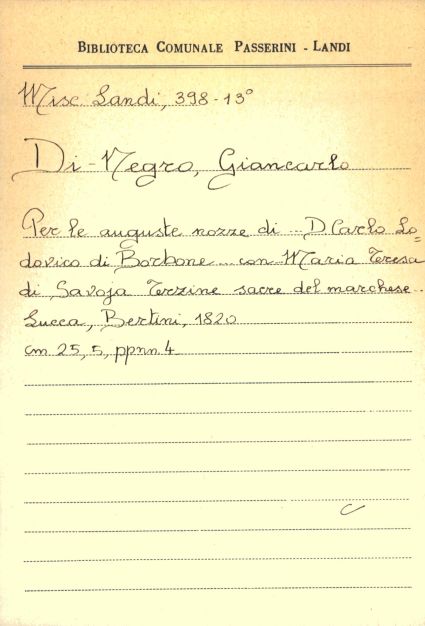 BIBLIOTECA COMUNALE PASSERINI - LANDI
Misc. Landi, 398-13°
Di-Negro, Giancarlo
Per le auguste nozze di ... D Carlo Lo=
dovico di Borbone ... con Maria Teresa
di Savoja Terzine sacre del marchese ..
Lucca, Bertini, 1820
cm 25,5, ppnn. 4